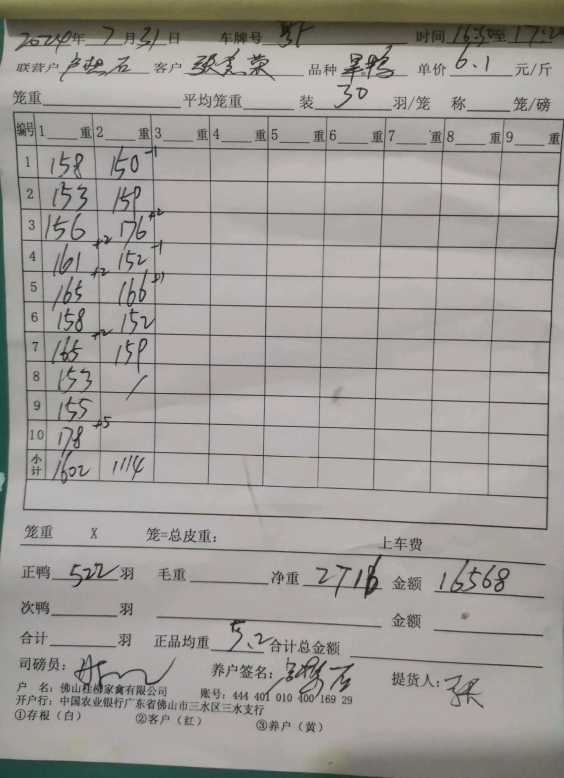 2024年 7 月 31 日 车牌号 时间 16:30至 17:20
联营户 卢 石 客户 张 荣 品种 单价 6.1 元/斤
笼重 平均笼重 装 30 羽/笼 称 笼/磅
编号 1 重 2 重 3 重 4 重 5 重 6 重 7 重 8 重 9 重
1 158 150 -1
2 153 159
3 156 176 +2
4 161 +2 152 -1
5 165 +2 166
6 158 152
7 165 +2 159
8 153 /
9 155
10 178 +5
小计 1602 1114
笼重 X 笼=总皮重： 上车费
正鸭 522 羽 毛重 净重 2716 金额 16568
次鸭 羽 金额
合计 羽 正品均重 5.2 合计总金额
司磅员： 养户签名： 石 提货人： 张
户 名：佛山桂柳家禽有限公司 账号：444 401 010 400 169 29
开户行：中国农业银行广东省佛山市三水区三水支行
①存根（白） ②客户（红） ③养户（黄）